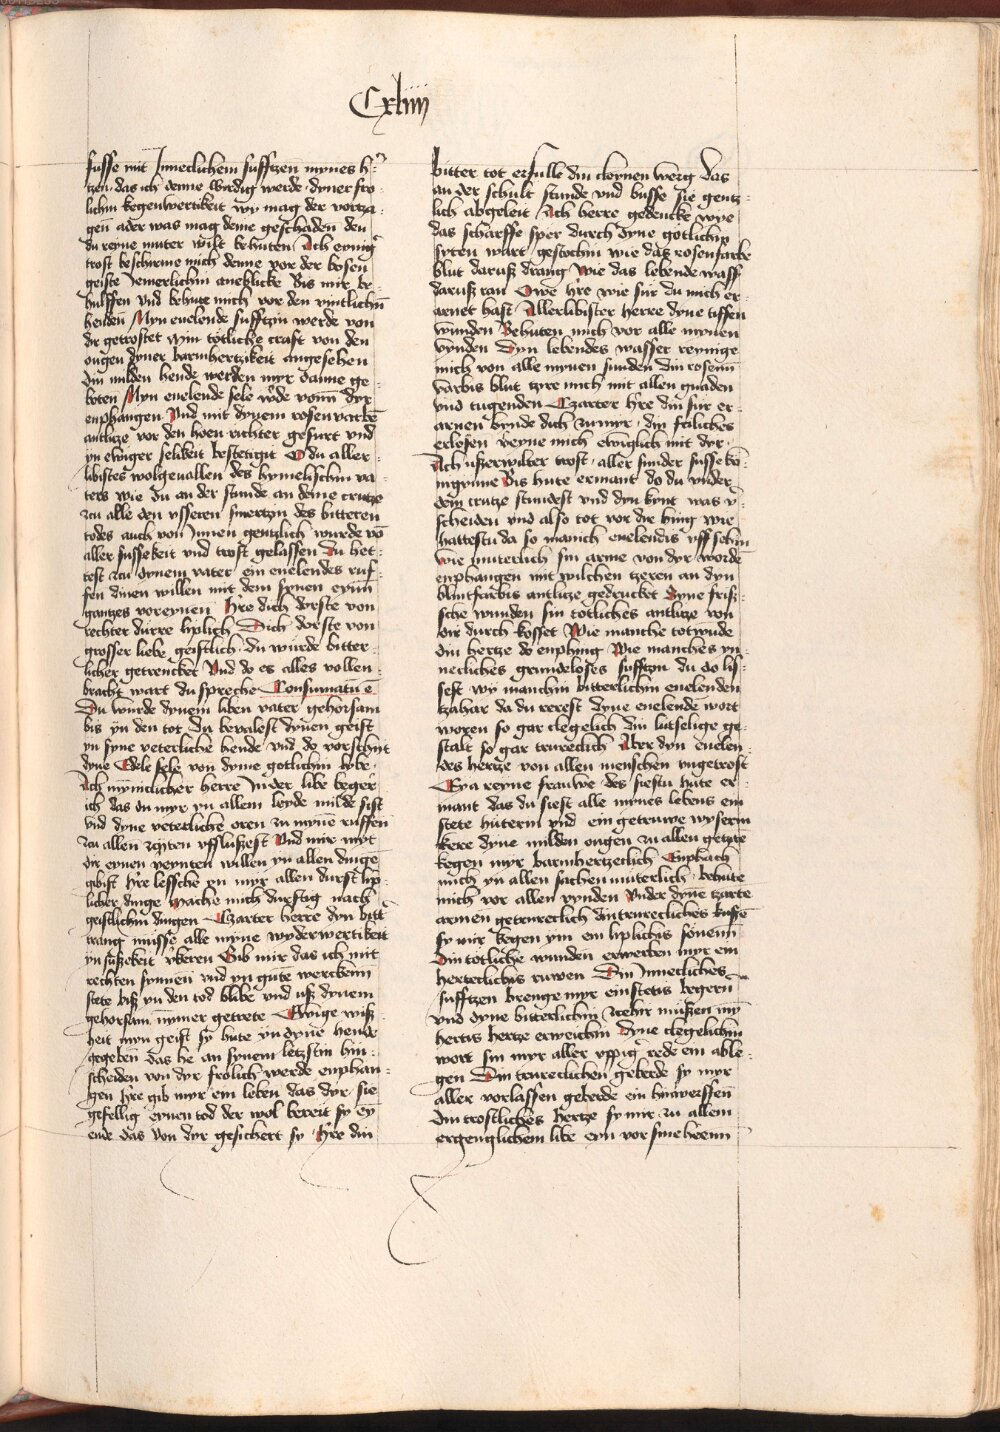 Cxliiij
susse mit Inneclichem sufftzen mynes h'¬
tzen das ich denne wirdig werde dyner fro¬
lichin kegenwertikeit wy mag der vortza¬
gen ader was mag deme geschaden den
du reyne muter wilt behuten Ach eynig'
trost beschirme mich denne vor der bosen
geiste Jemerlichin aneblicke Bis mir be¬
hulffen vnd behute mich vor den vintlichin
henden Myn enelende sufftzin werde von
dir getrostet myn tötliche craft von den
ougen dyner barmhertzikeit angesehen
din milden hende werden myr danne ge¬
boten Myn enelende sele w'de vonn dyr
enphangen Vnd mit dynem rosenvarbē
antlitze vor den hoen richter gefurt vnd
yn ewiger selikeit bestetigit O du aller¬
libistes wolgeuallen des hymelischin va¬
ters wie du an der stunde an deme crutze
zcu alle den vsseren smertzin des bitteren
todes auch von Innen gentzlich wurde vō
aller sussekeit vnd trost gelassen Du het¬
test zcu dynem vater ein enelendes ruf¬
fen dinen willen mit dem synen eyniī
gantzes voreynen Hre dich dorste von
rechter durre liplich Dich dorste von
grosser liebe geistlich du wurde bitter¬
licher getrencket Vnd do es alles vollen¬
bracht wart du spreche Consummatū ē
Du wurde dynem liben vater gehorsam
bis yn den tot Du bevalest dynen geist
yn syne veterliche hende vnd do vorschyt
dyne Edele sele von dyme gotlichin libe
Ach mynniclicher herre In der libe beger'
ich das du myr yn allem leyde milde sist
Vnd dyne veterliche oren zu myne ruffen
zcu allen zcyten vffslußest Vnd mir myt
dir eynen veynten willen yn allen dinge
gebist Hre lessche yn myr allen durst lip¬
licher dinge Mache mich durstig nach
geistlichin dingen Czarter herre dyn bitt'
trang musse alle myne wyderwertikeit
yn sußekeit vkeren Gib mir das ich mit
rechten synnen vnd yn gute werckenn
stete biß yn den tod blibe vnd uß dynem
gehorsam nymer getrete Ewige wiß¬
heit myn geist sy hute yn dyne hende
gegeben das he an synem letzstin hin¬
scheiden von dyr frolich werde enphan¬
gen Hre gib myr ein leben das dyr sie
gefellig eynen tod der wol bereit sy ey
ende das von dyr gesichert sy Hre din
bitter tot erfulle din cleynen werg das
an der schult stande vnd busse sie gentz¬
lich abgeleit Ach herre gedencke wye
das scharffe sper durch dyne gotlichin
syten wart gestochin wie das rosenfarbe
blut daruß drang Wie das lebende wass'
daruß ran Owe hre wie sur du mich er¬
arnet hast Allerlibister herre dyne tiffen
wunden Behuten mich vor alle mynen
vynden Dyn lebendes wasser reynige
mich von alle mynen sunden din rosenn
varbis blut tzire mich mit allen gnaden
vnd tugenden Czarter h're din sur er¬
arnen binde dich zu myr din friliches
erlosen vereyne mich ewiglich mit dyr
Ach ußerwilter trost aller sunder susse ko¬
nigynne Bis hute ermant do du vnder
dem crutze stundest vnd dyn kynt was v'¬
scheiden vnd also tot vor dir hing wie
hattestu da so manich enelendis vffsehin
Wie muterlich sin arme von dyr wordē
enphangen mit wilchen tzeren an dyn
blutfarbis antlitze gedrucket Syne friß¬
sche wunden sin totliches antlitze von
dir durch kosset Wie manche totwūde
din hertze do enphing Wie manches yn¬
necliches grundeloses sufftzin du do lis¬
sest wy manchin bitterlichin enelenden
tzahar da du rerest dyne enelende wort
woren so gar clegelich din lutselige ge¬
stalt so gar trureclich Aber dyn enelen¬
des hertze von allen menschen vngetrost
Eya reyne frauwe des siestu hute er¬
mant das du siest alle mynes lebens ein
stete huterin vnd ein getruwe wyserin
kere dyne milden ougen zu allen getzitē
kegen myr barmhertzeclich Enphach
mich yn allen sachen muterlich behute
mich vor allen vynden Vnder dyne tzarte
armen getrureclich Din trureclichis kussē
sy mir kegen ym ein liplichis sonenn
Din totliche wunden erwerben myr ein
hertzerlichis ruwen Din Innecliches
sufftzen brenge myr ein stetis begern
vnd dyne bitterlichin zcehir mußen my
hertis hertze erweichin Dyne clegelichin
wort sin myr aller vppig' rede ein able¬
gen Din trureclichen geberde sy myr
aller vorlassen geberde ein hinwerffen
din trostliches hertze sy mir zu allem
ergenglichem libe eyn vorsmehenn